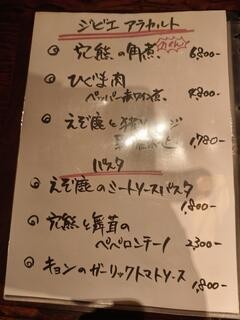 ジビエ アラカルト
◎ 穴熊の角煮 6,800-
◎ ひぐま肉
ペッパー赤ワイン煮 4,800-
◎ えぞ鹿と猪
1,780-
パスタ
◎ えぞ鹿のミートソースパスタ
1,800-
◎ 穴熊と舞茸の
ペペロンチーノ 2,300-
◎ キョンのガーリックトマトソース
1,800-